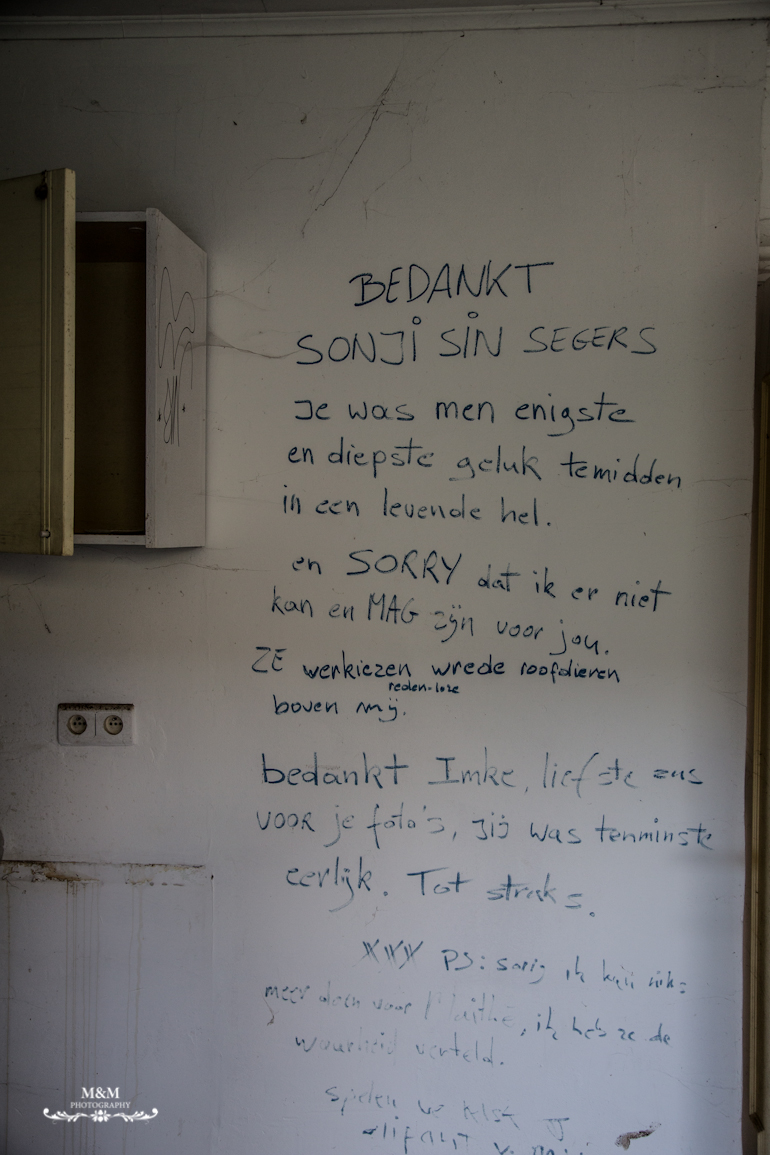 BEDANKT
SONJI SIN SEGERS
Je was men enigste
en diepste geluk temidden
in een levende hel.
en SORRY dat ik er niet
kan en MAG zijn voor jou.
ZE werkiezen wrede roofdieren
reden-loze
boven mij.
bedankt Imke, liefste zus
voor je foto's, jij was tenminste
eerlijk. Tot straks.
XXX PS: sorry ik kan niks
meer doen voor, ik heb ze de
waarheid verteld.
spelen we
M&M
PHOTOGRAPHY